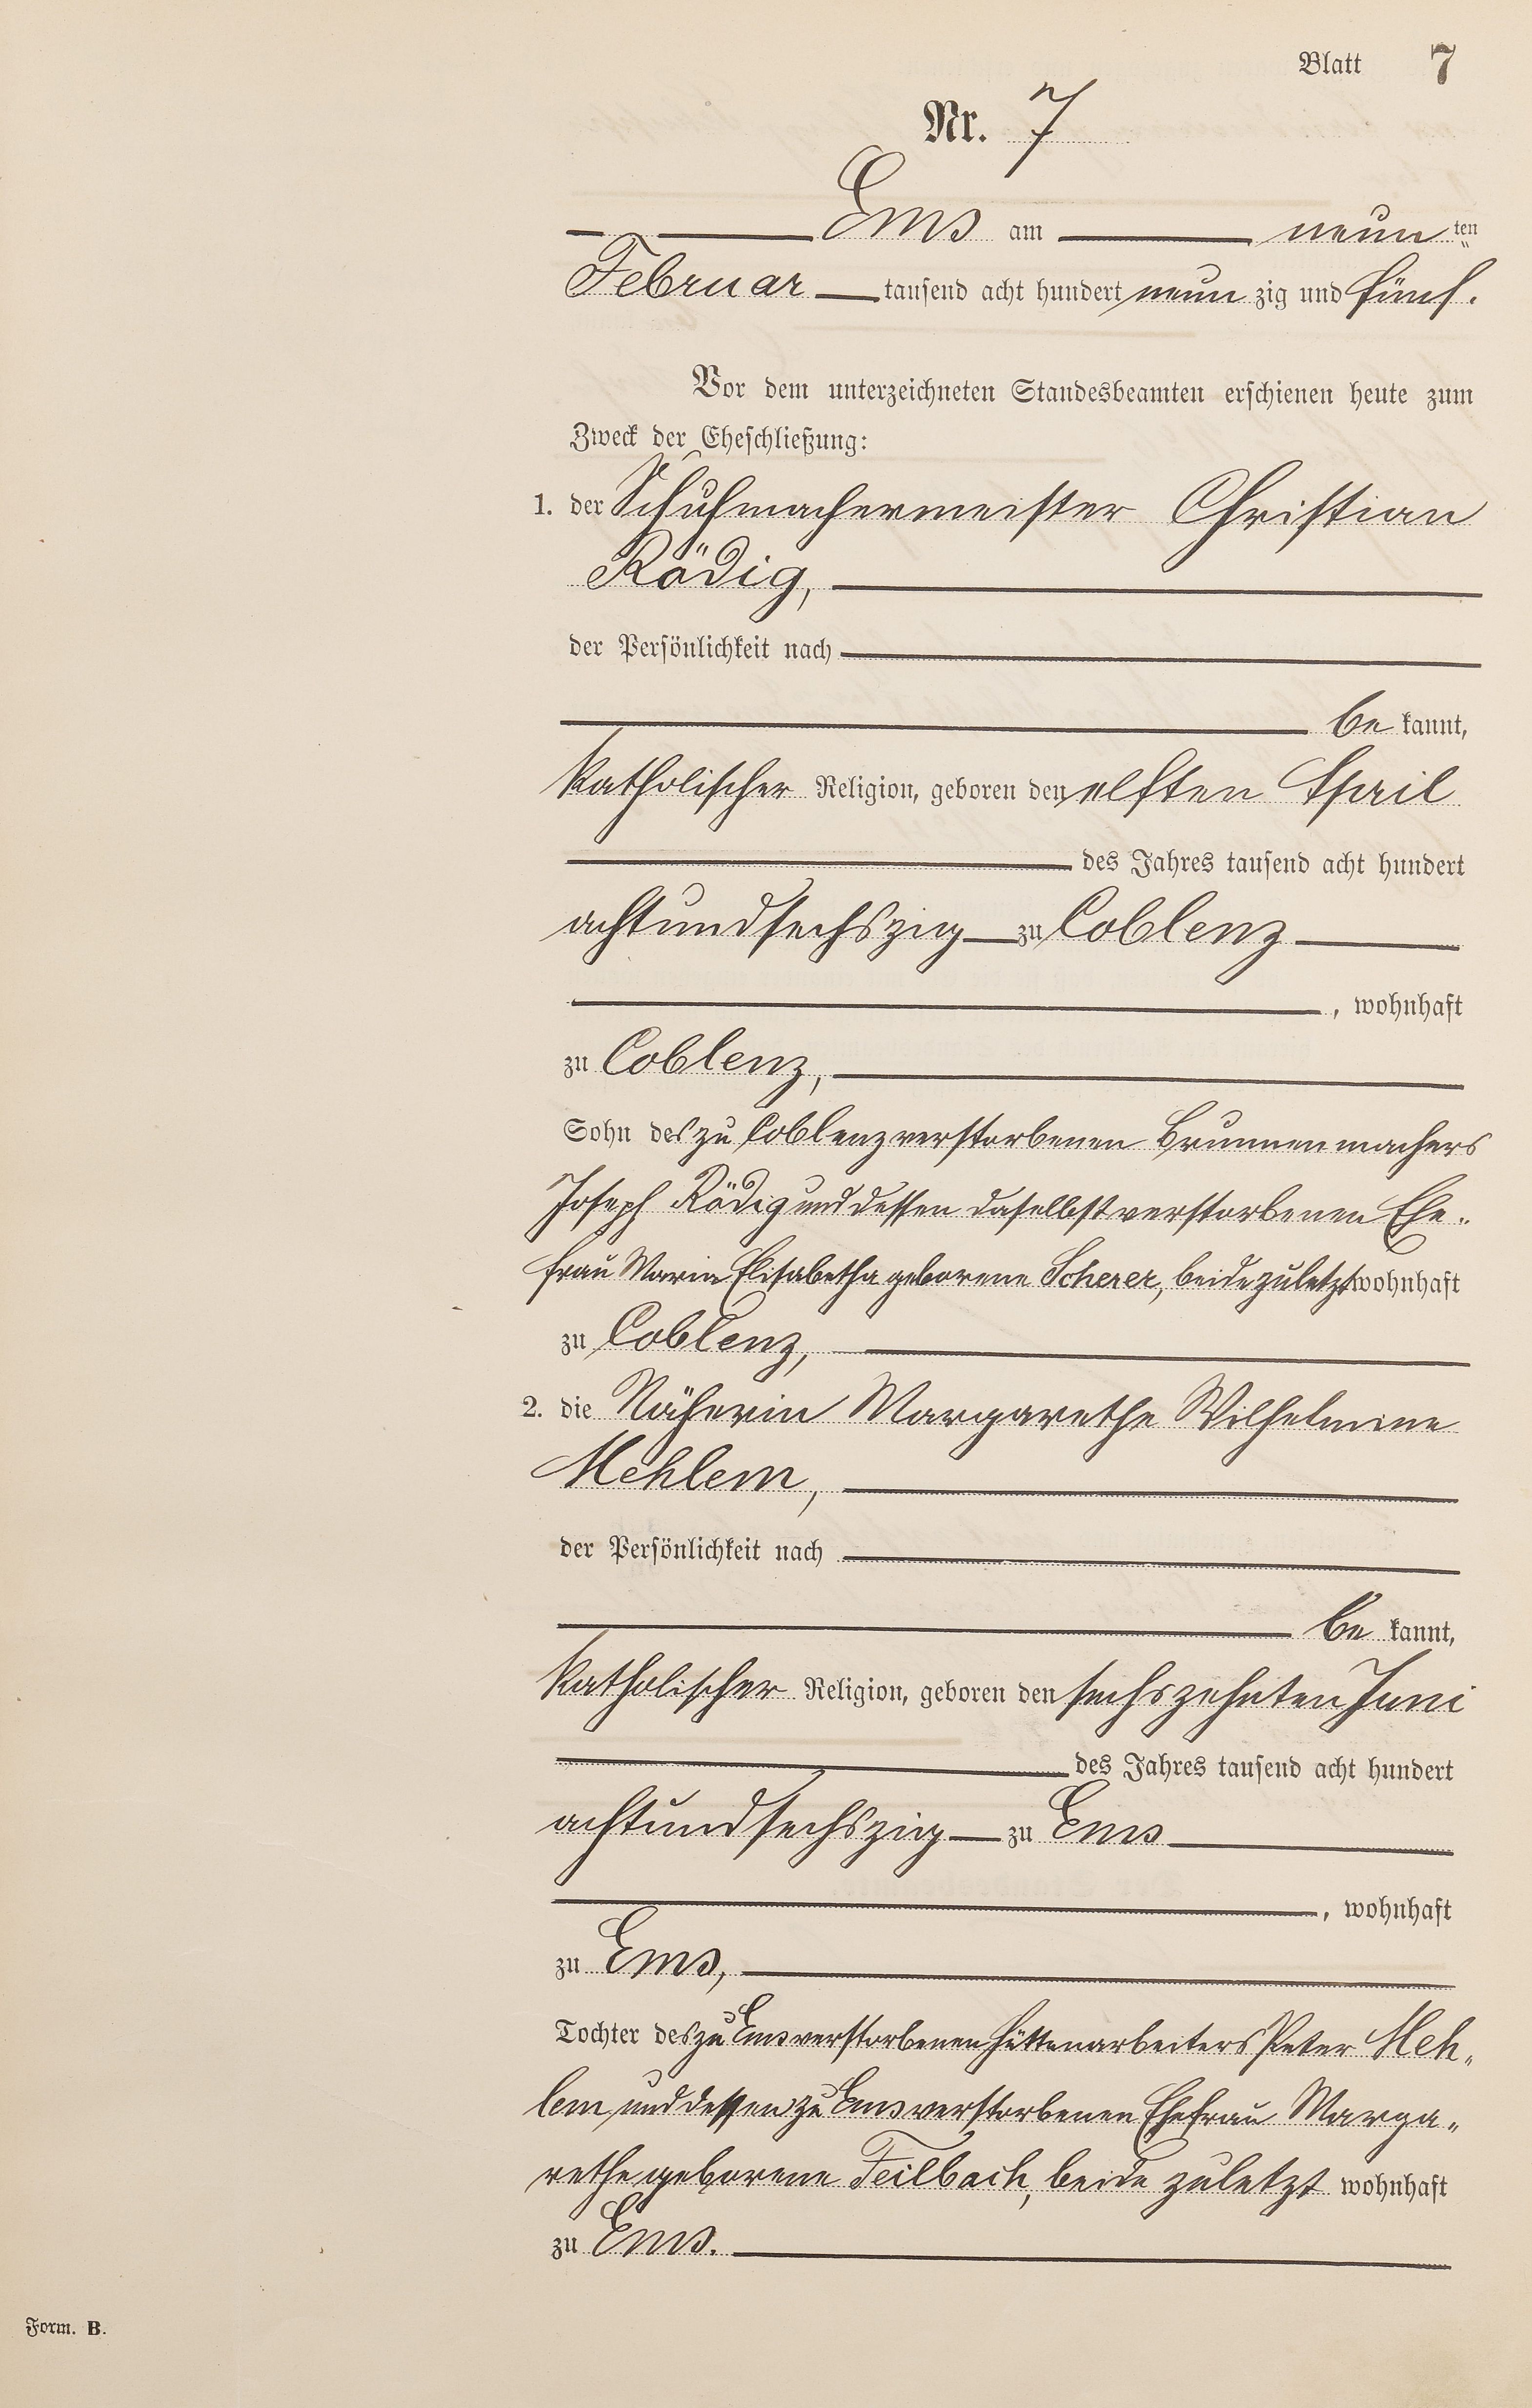 Blatt 7
Nr. 7
Ems am neunten
Februar tausend acht hundert neunzig und fünf.
Vor dem unterzeichneten Standesbeamten erschienen heute zum
Zweck der Eheschließung:
1. der Schuhmachermeister Christian
Rödig,
der Persönlichkeit nach
bekannt,
katholischer Religion, geboren den elften April
des Jahres tausend acht hundert
achtundsechszig zu Coblenz
, wohnhaft
zu Coblenz,
Sohn des zu Coblenz verstorbenen Brunnenmachers
Joseph Rödig und dessen daselbst verstorbenen Ehe-
frau Maria Elisabetha geborene Scherer, beide zuletzt wohnhaft
zu Coblenz,
2. die Näherin Margarethe Wilhelmine
Mehlem,
der Persönlichkeit nach
bekannt,
katholischer Religion, geboren den sechszehnten Juni
des Jahres tausend acht hundert
achtundsechszig zu Ems
, wohnhaft
zu Ems,
Tochter des zu Ems verstorbenen Hüttenarbeiters Peter Meh-
lem und dessen zu Ems verstorbenen Ehefrau Marga-
rethe geborene Feilbach, beide zuletzt wohnhaft
zu Ems.
Form. B.